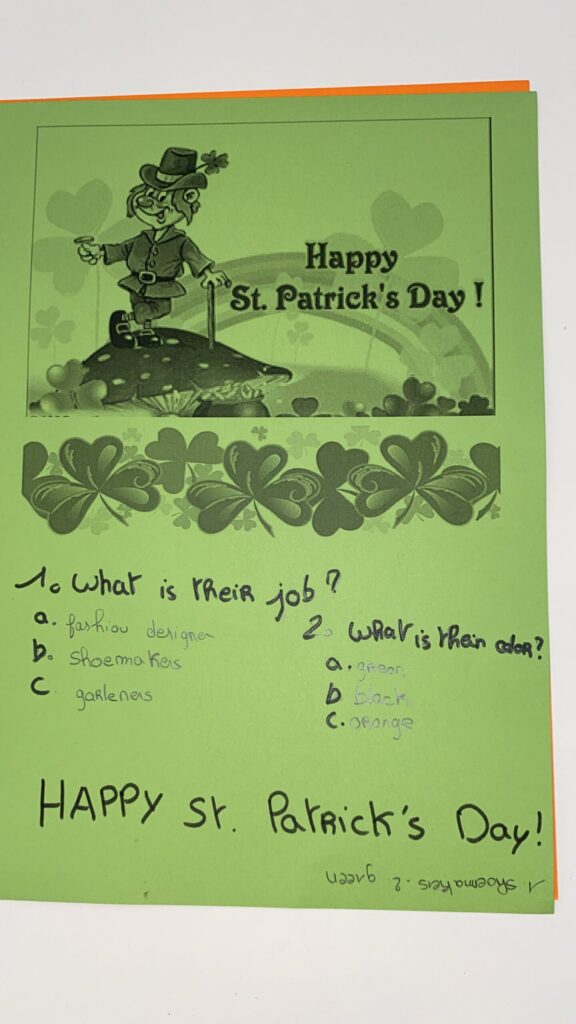 Happy
St. Patrick's Day !
1. What is their job ?
a. fashion designer
b. shoemakers
c garleners
2. What is their color?
a. green
b black
c. orange
HAPPY St. Patrick's Day!
1 shoemakers. 2. green